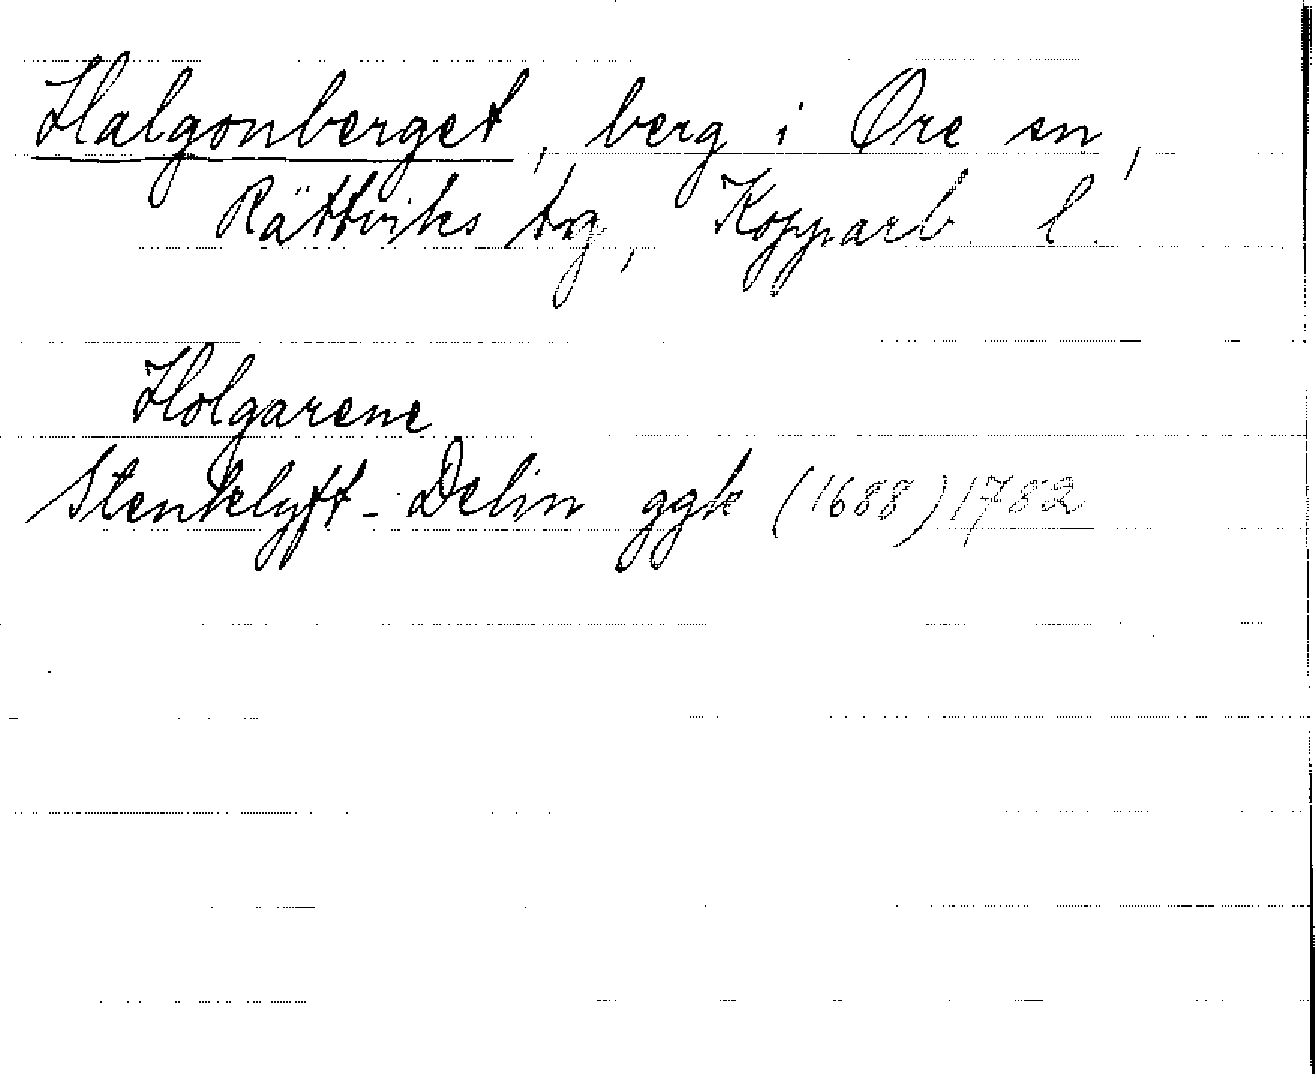 Halgonberget, berg i Ore sn,
Rättviks tg, Kopparb. l.
Holgarene
Stenklyft - Delin ggk (1688) 1782